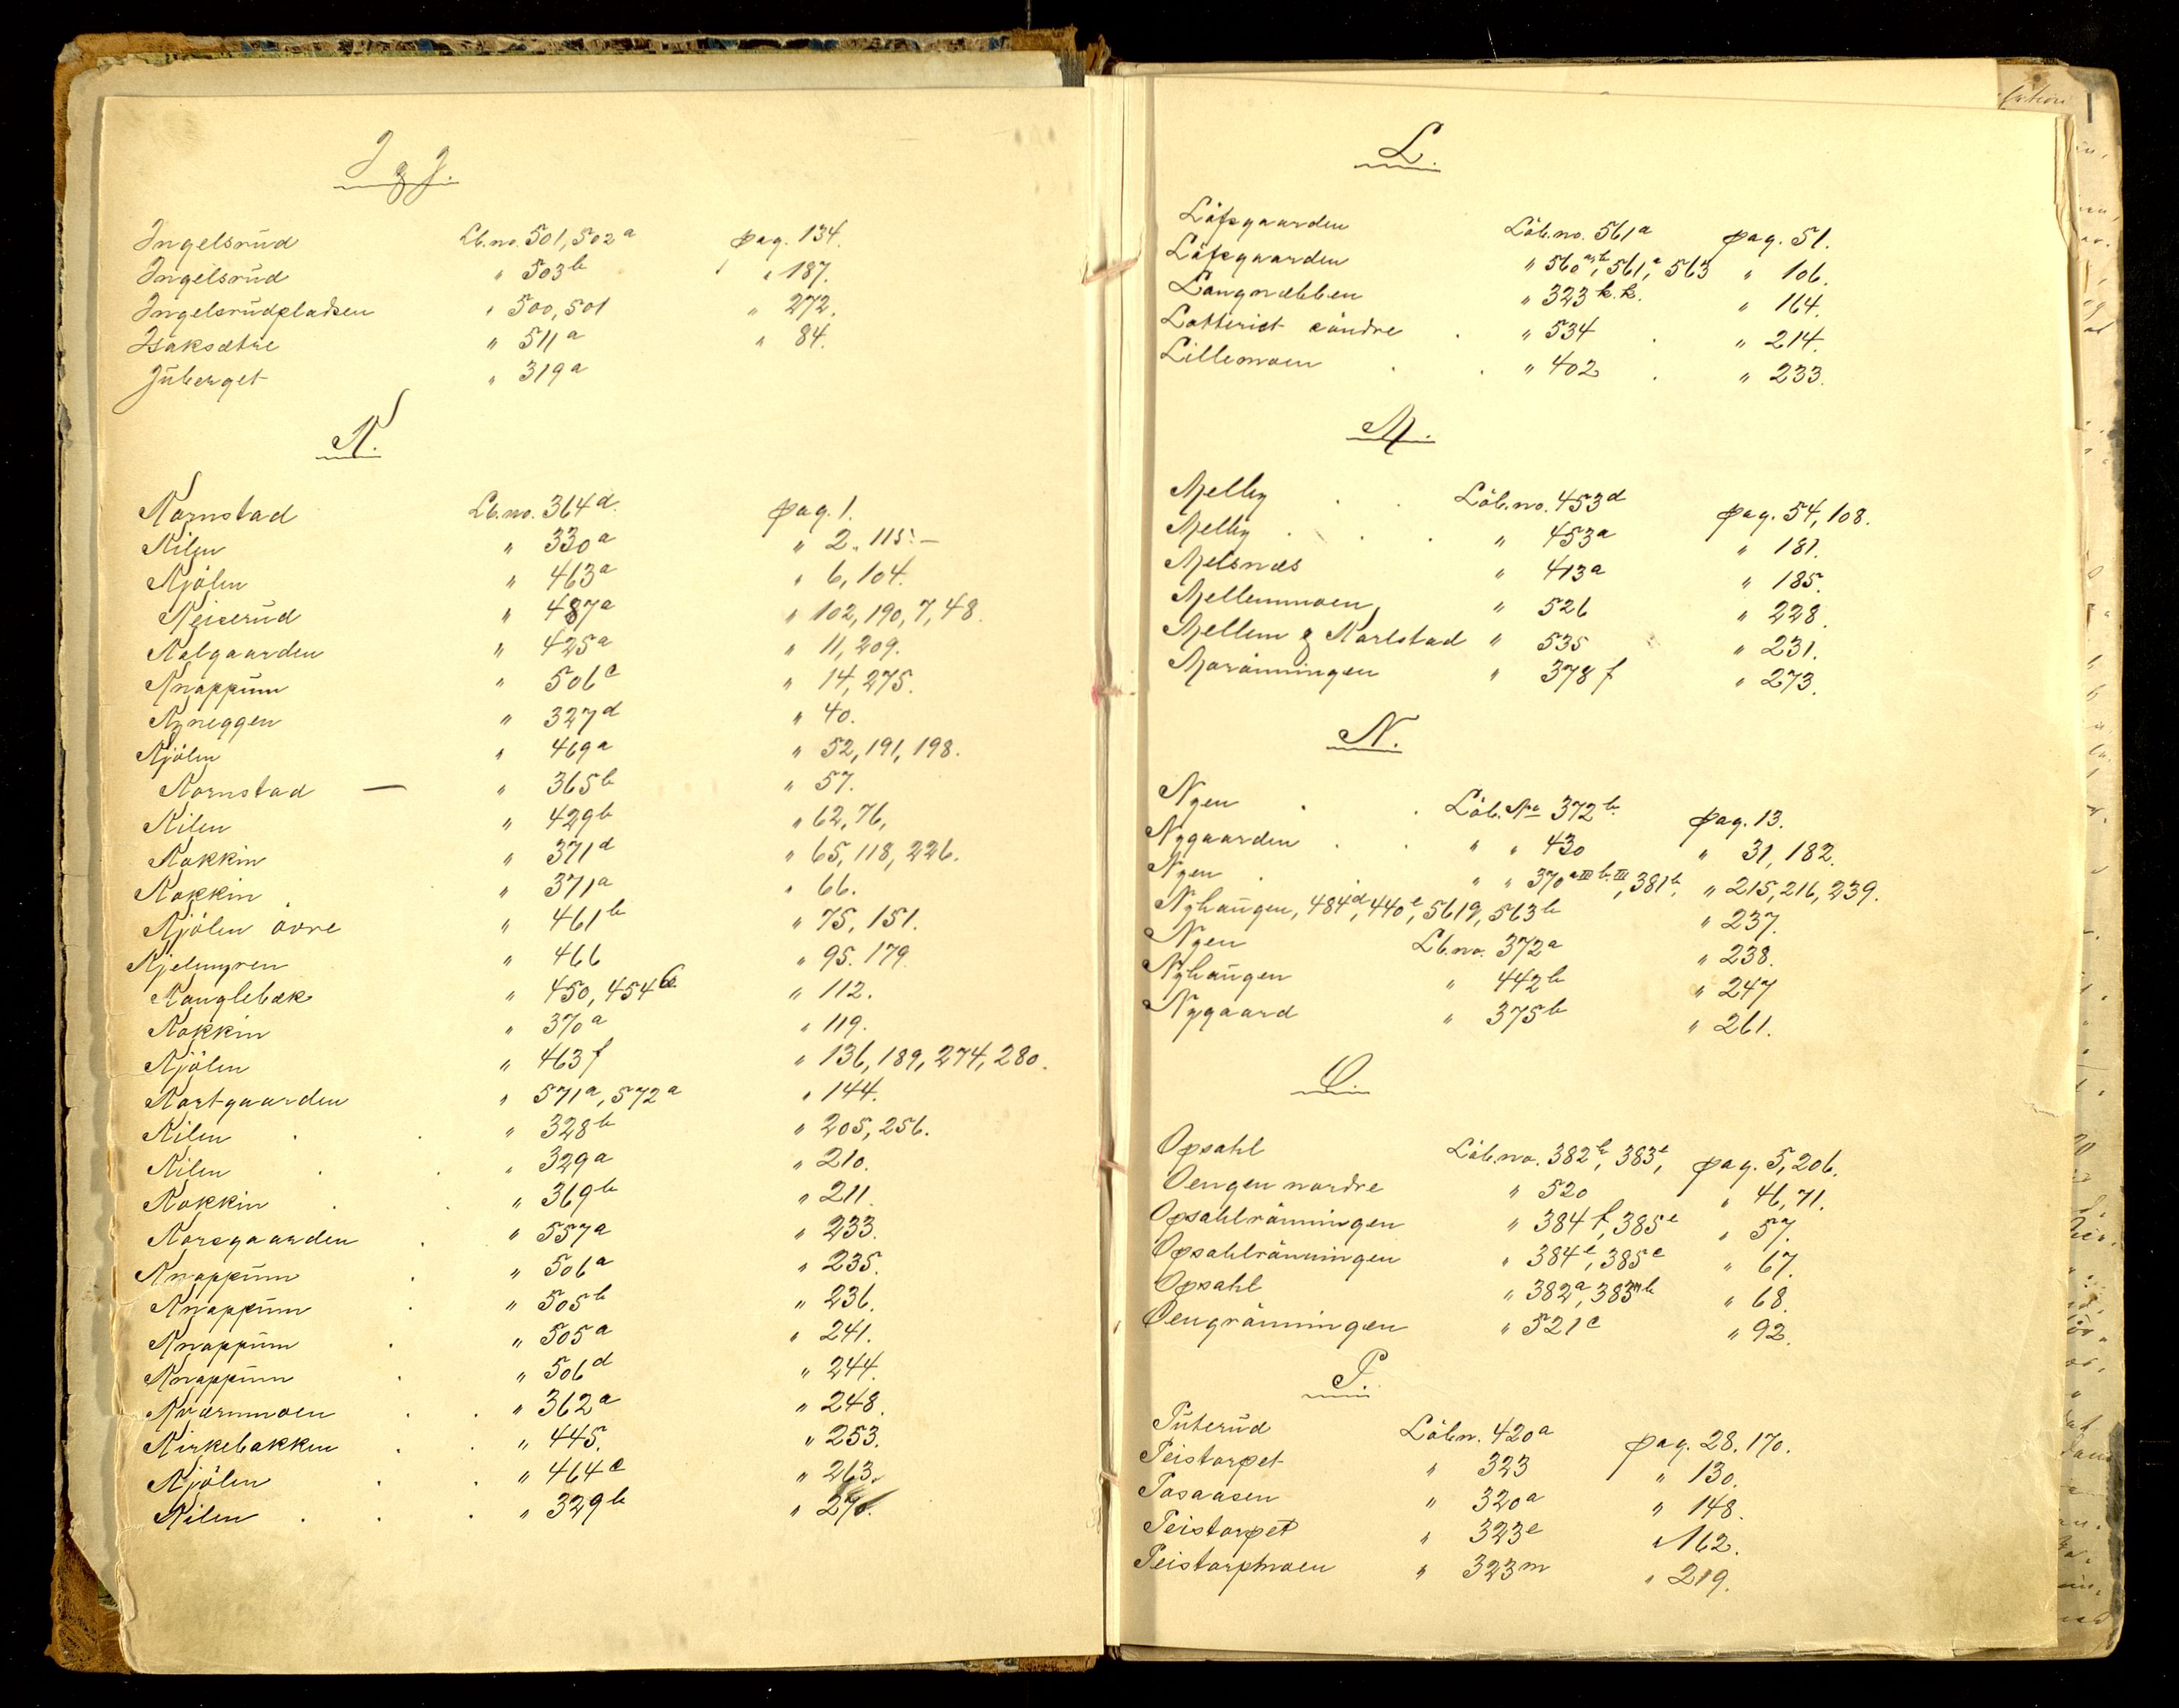 I & J.
Ingelsrud Lb.no. 501, 502a pag. 134.
Ingelsrud " 503b " 187.
Ingelsrudpladsen " 500, 501 " 272.
Isaksætre " 511a " 84.
Juberget " 319a
K.
Kornstad Lb.no. 364d. pag. 1.
Kilen " 330a " 2. 115. –
Kjölen " 463a " 6, 104.
Keiserud " 487a " 102, 190, 7, 48.
Kalgaarden " 425a " 11, 209.
Knappum " 506c " 14, 275.
Kyneggen " 327d " 40.
Kjölen " 469a " 52, 191, 198.
Kornstad — " 365b " 57.
Kilen " 429b " 62, 76,
Kokkin " 371d " 65, 118, 226.
Kokkin " 371a " 66.
Kjölen övre " 461b " 75, 151.
Kjelmyren " 466 " 95. 179.
Kauglebæk " 450, 454b " 112.
Kokkin " 370a " 119.
Kjölen " 463f " 136, 189, 274, 280.
Kortgaarden " 571a, 572a " 144.
Kilen " 328b " 205, 256.
Kilen " 329a " 210.
Kokkin " 369b " 211.
Korsgaarden " 557a " 233.
Knappum " 506a " 235.
Knappum " 505b " 236.
Knappum " 505a " 241.
Knappum " 506d " 244.
Kværnmoen " 362a " 248.
Kirkebakken " 445. " 253.
Kjölen " 464c " 263.
Kilen " 329b " 270.
L.
Löfsgaarden Löb.no. 561a pag. 51.
Löfsgaarden " 560ab, 561,a 563 " 106.
Langnæbben " 323k.k. " 164.
Lotteriet söndre " 534 " 214.
Lillemoen " 402 " 233.
M.
Melby Löb.no. 453d pag. 54, 108.
Melby " 453a " 181.
Melsnæs " 413a " 185.
Mellemmoen " 526 " 228.
Mellem & Karlstad " 535 " 231.
Morönningen " 378f " 273.
N.
Nyen Löb.No 372b. pag. 13.
Nygaarden " " 430 " 31, 182.
Nyen " " 370a III b. III, 381b. " 215, 216, 239.
Nyhaugen, 484d, 440e, 561g, 563b " 237.
Nyen Lb.no. 372a " 238.
Nyhaugen " 442b " 247
Nygaard " 375b " 261.
O.
Opsahl Löb.no. 382b, 383e, pag. 5, 206.
Oengen nordre " 520 " 46, 71.
Opsahlrönningen " 384f, 385e " 57.
Opsahlrönningen " 384e, 385c " 67.
Opsahl " 382a, 383b " 68.
Oengrönningen " 521c " 92.
P.
Puterud Löbn. 420a pag. 28. 170.
Peistorpet " 323 " 130.
Posaasen " 320a " 148.
Peistorpet " 323e " 162.
Peistorpmoen " 323m " 219.